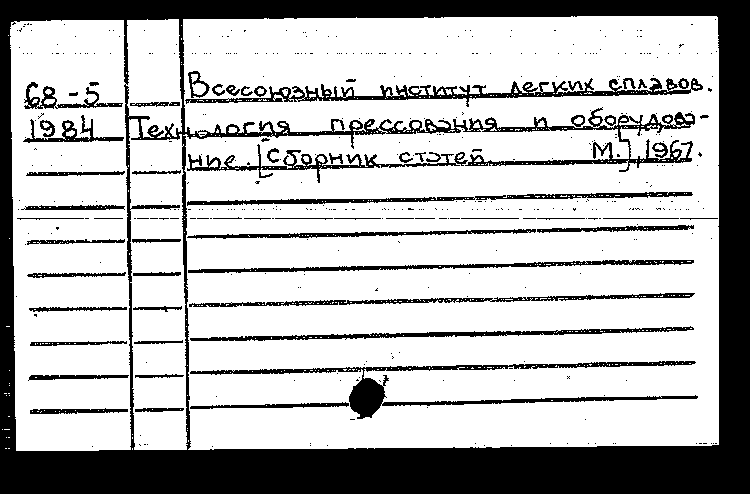 68-5 Всесоюзный институт легких сплавов.
1984 Технология прессования и оборудова-
ние. [Сборник статей М.], 1967.